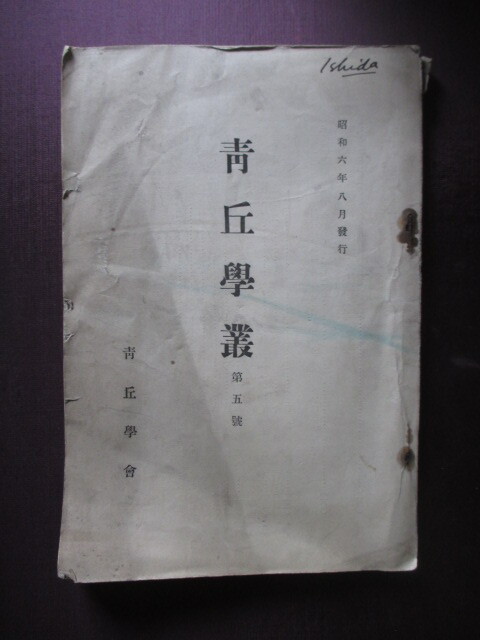 Ishida
昭和六年八月發行
靑丘學叢
第五號
靑丘學會